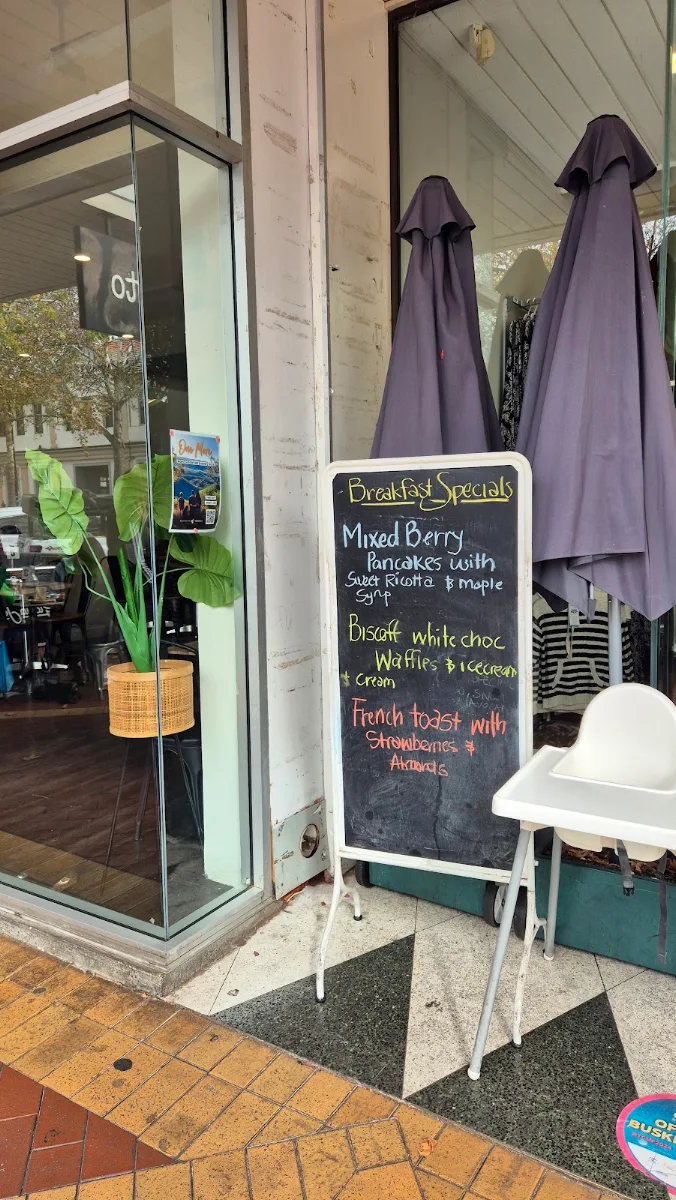 to
One More
Breakfast Specials
Mixed Berry
Pancakes with
Sweet Ricotta & maple
Syrp
Biscoff white choc
Waffles & icecream
& cream
French toast with
Strawberries &
Almonds
OF
BUSK